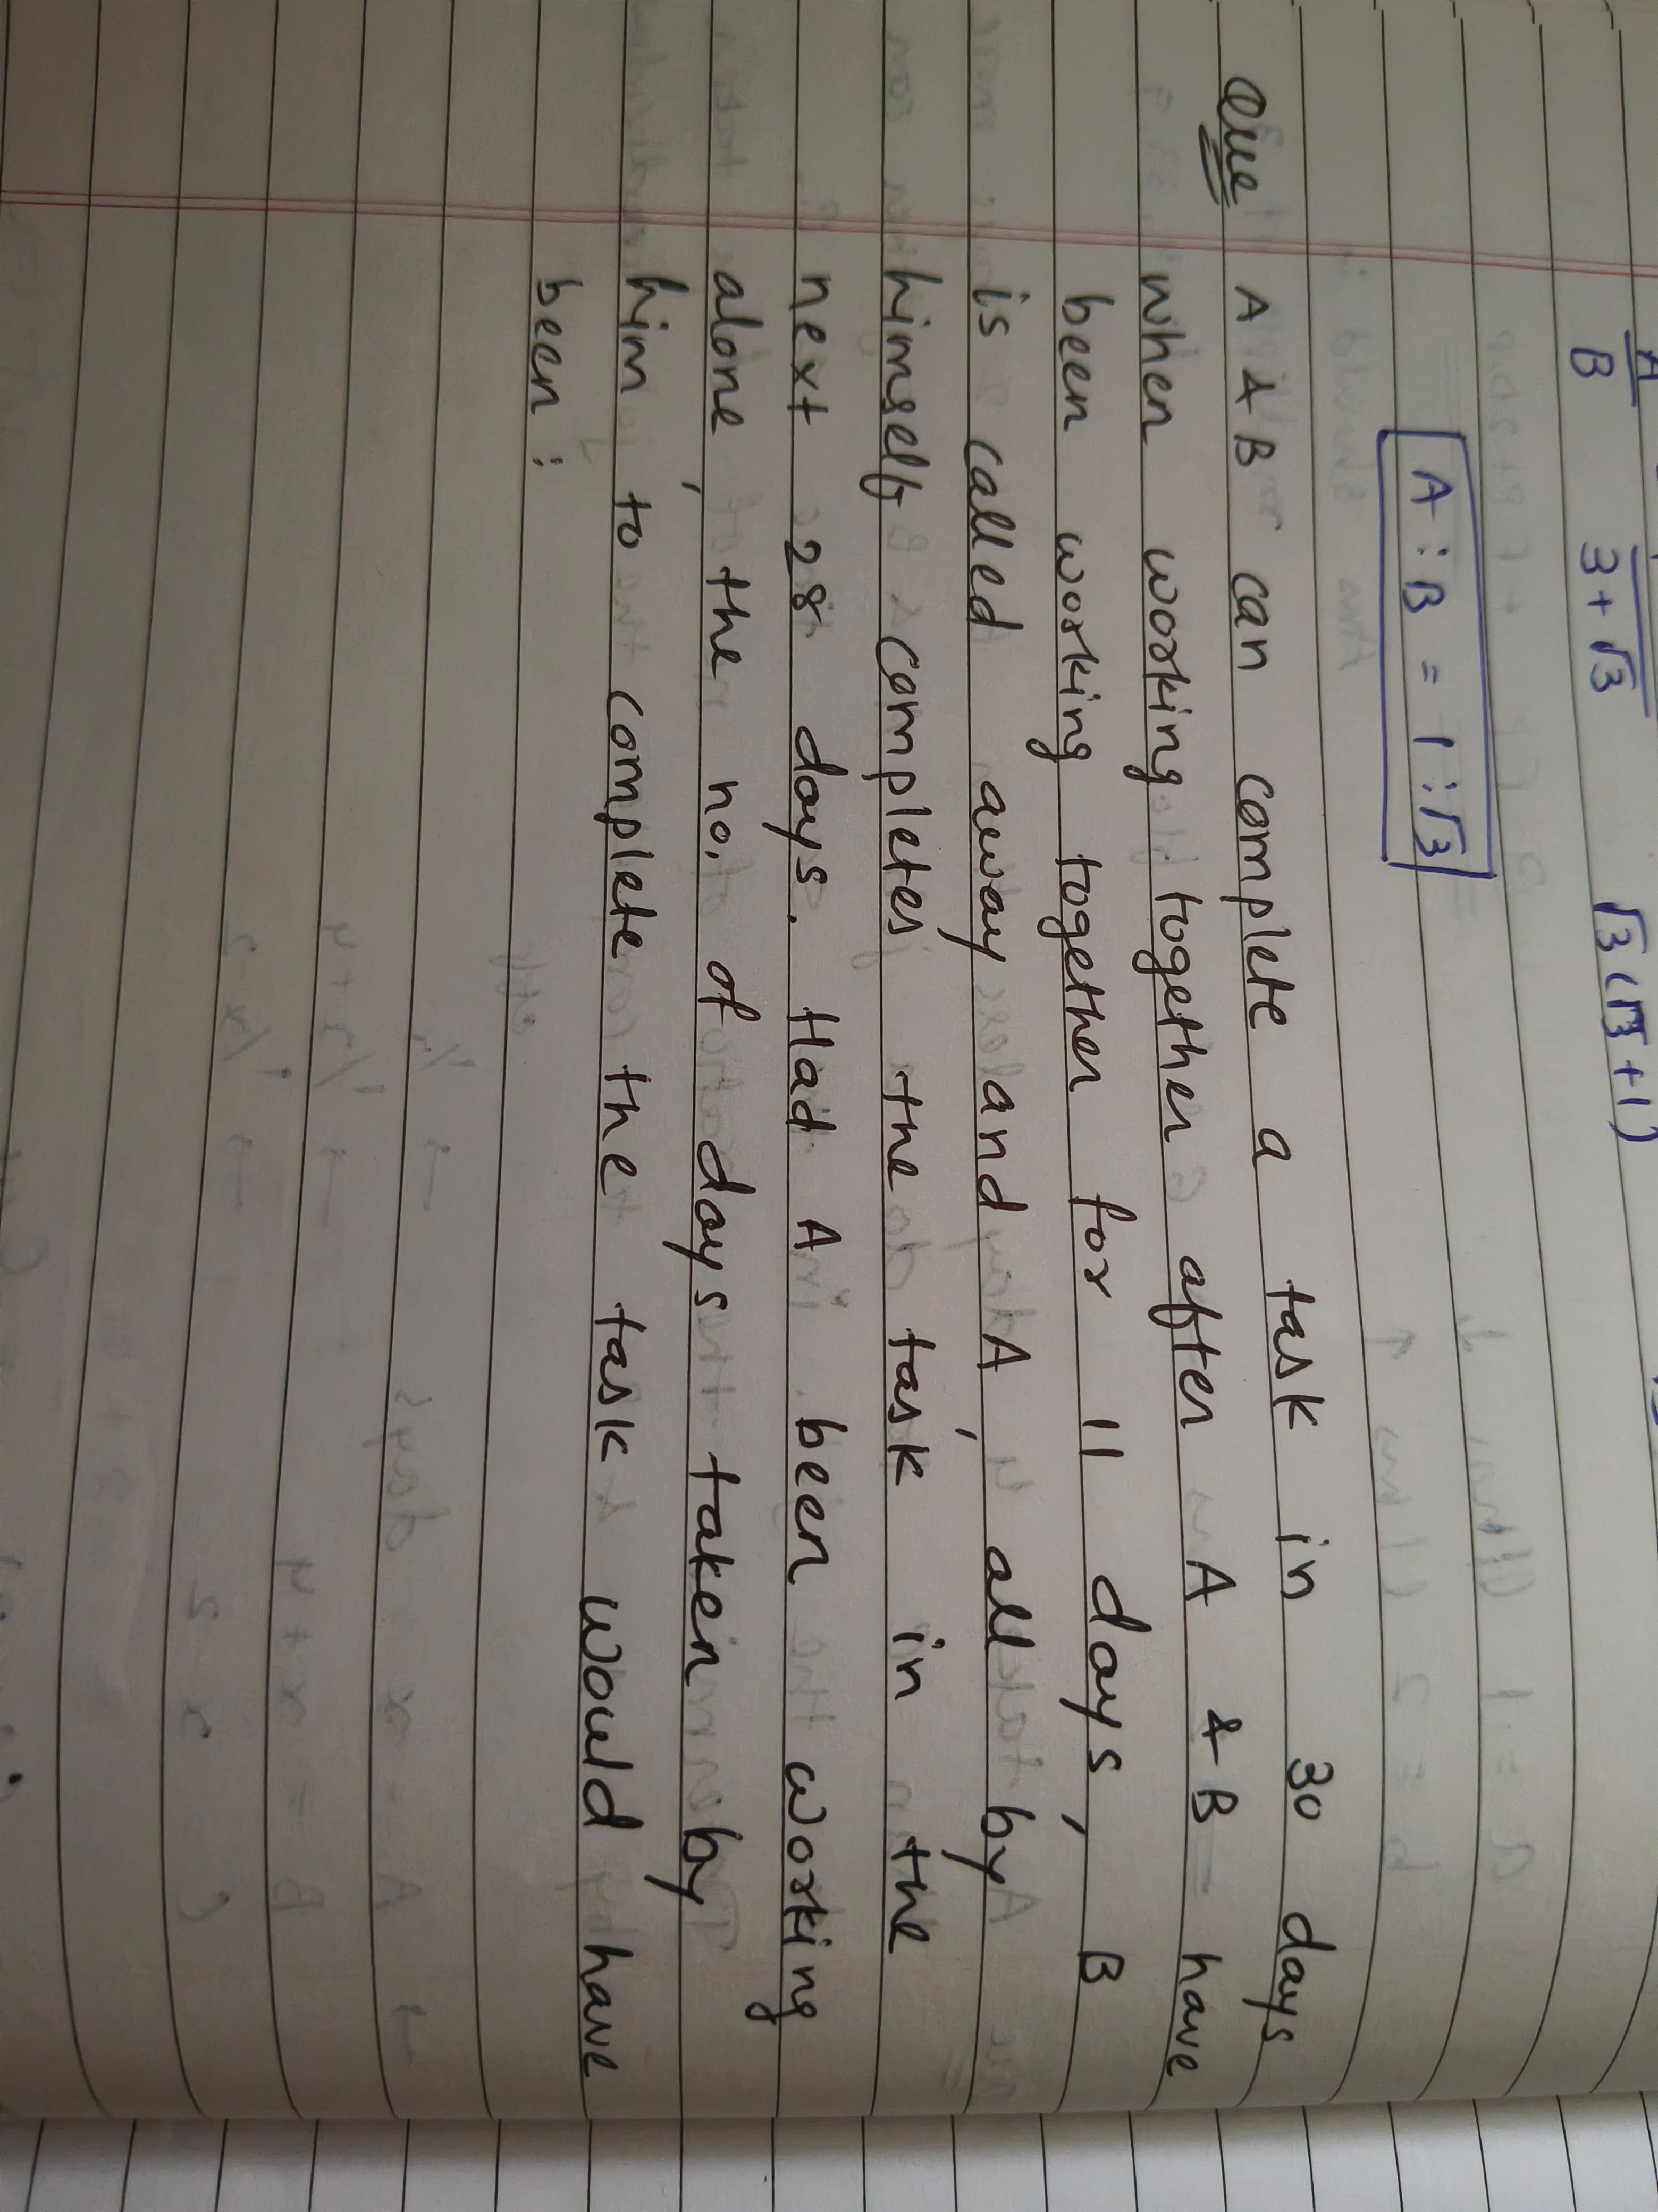 A
B
3+√3
√3(√3+1)
A : B = 1 : √3
Que A & B can complete a task in 30 days
when working together after A & B have
been working together for 11 days, B
is called away and A, all by
himself completes the task in the
next 28 days. Had A been working
alone, the no. of days taken by
him to complete the task would have
been :